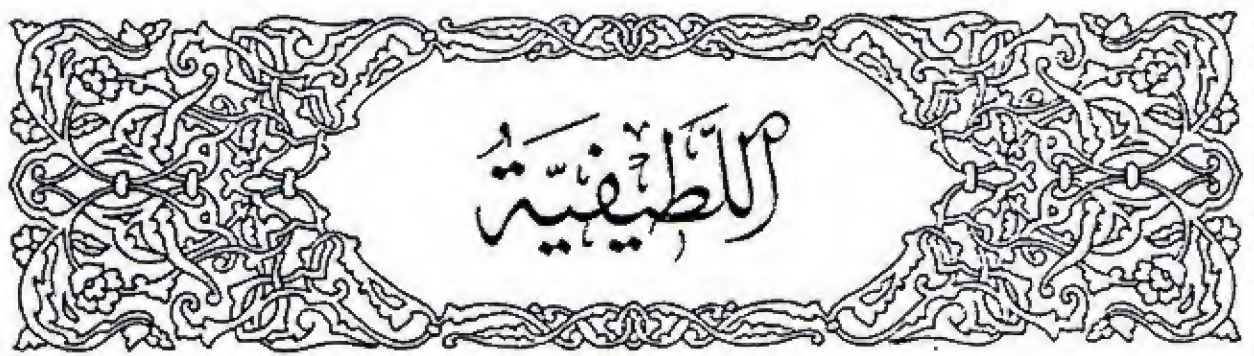 اللَّطِيفِيَّةُ